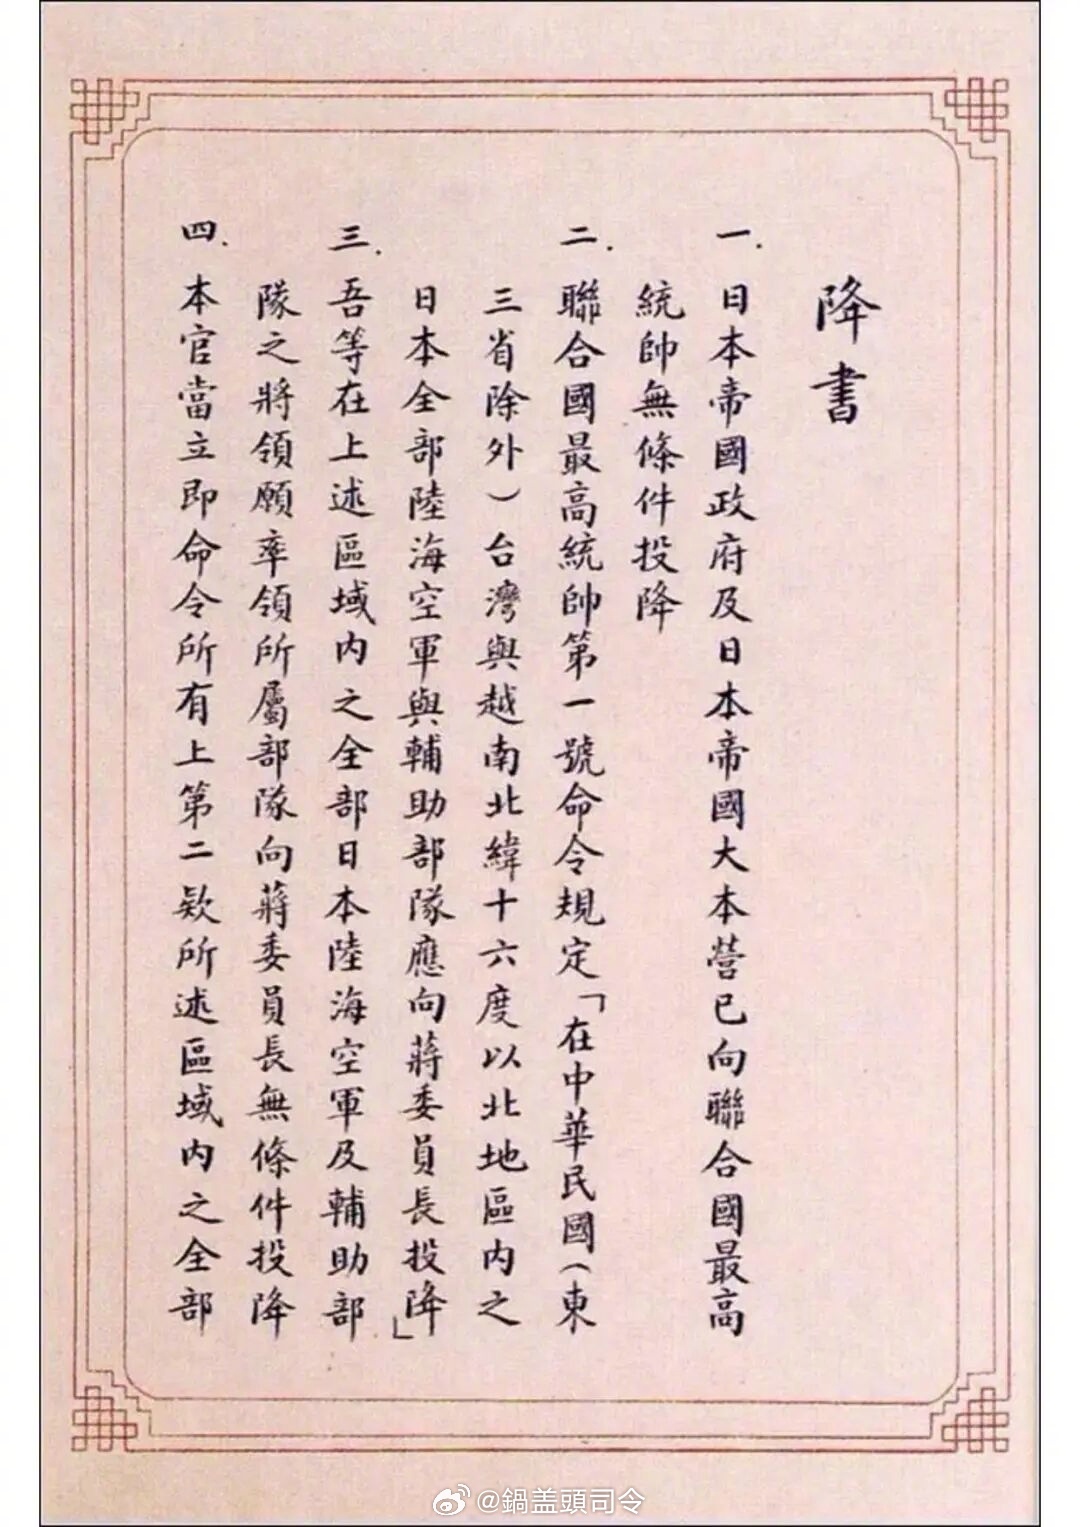 降書
一.日本帝國政府及日本帝國大本營已向聯合國最高
統帥無條件投降
二.聯合國最高統帥第一號命令規定「在中華民國(東
三省除外)台灣與越南北緯十六度以北地區內之
日本全部陸海空軍與輔助部隊應向蔣委員長投降」
三.吾等在上述區域內之全部日本陸海空軍及輔助部
隊之將領願率領所屬部隊向蔣委員長無條件投降
四.本官當立即命令所有上第二欵所述區域內之全部
@鍋盖頭司令